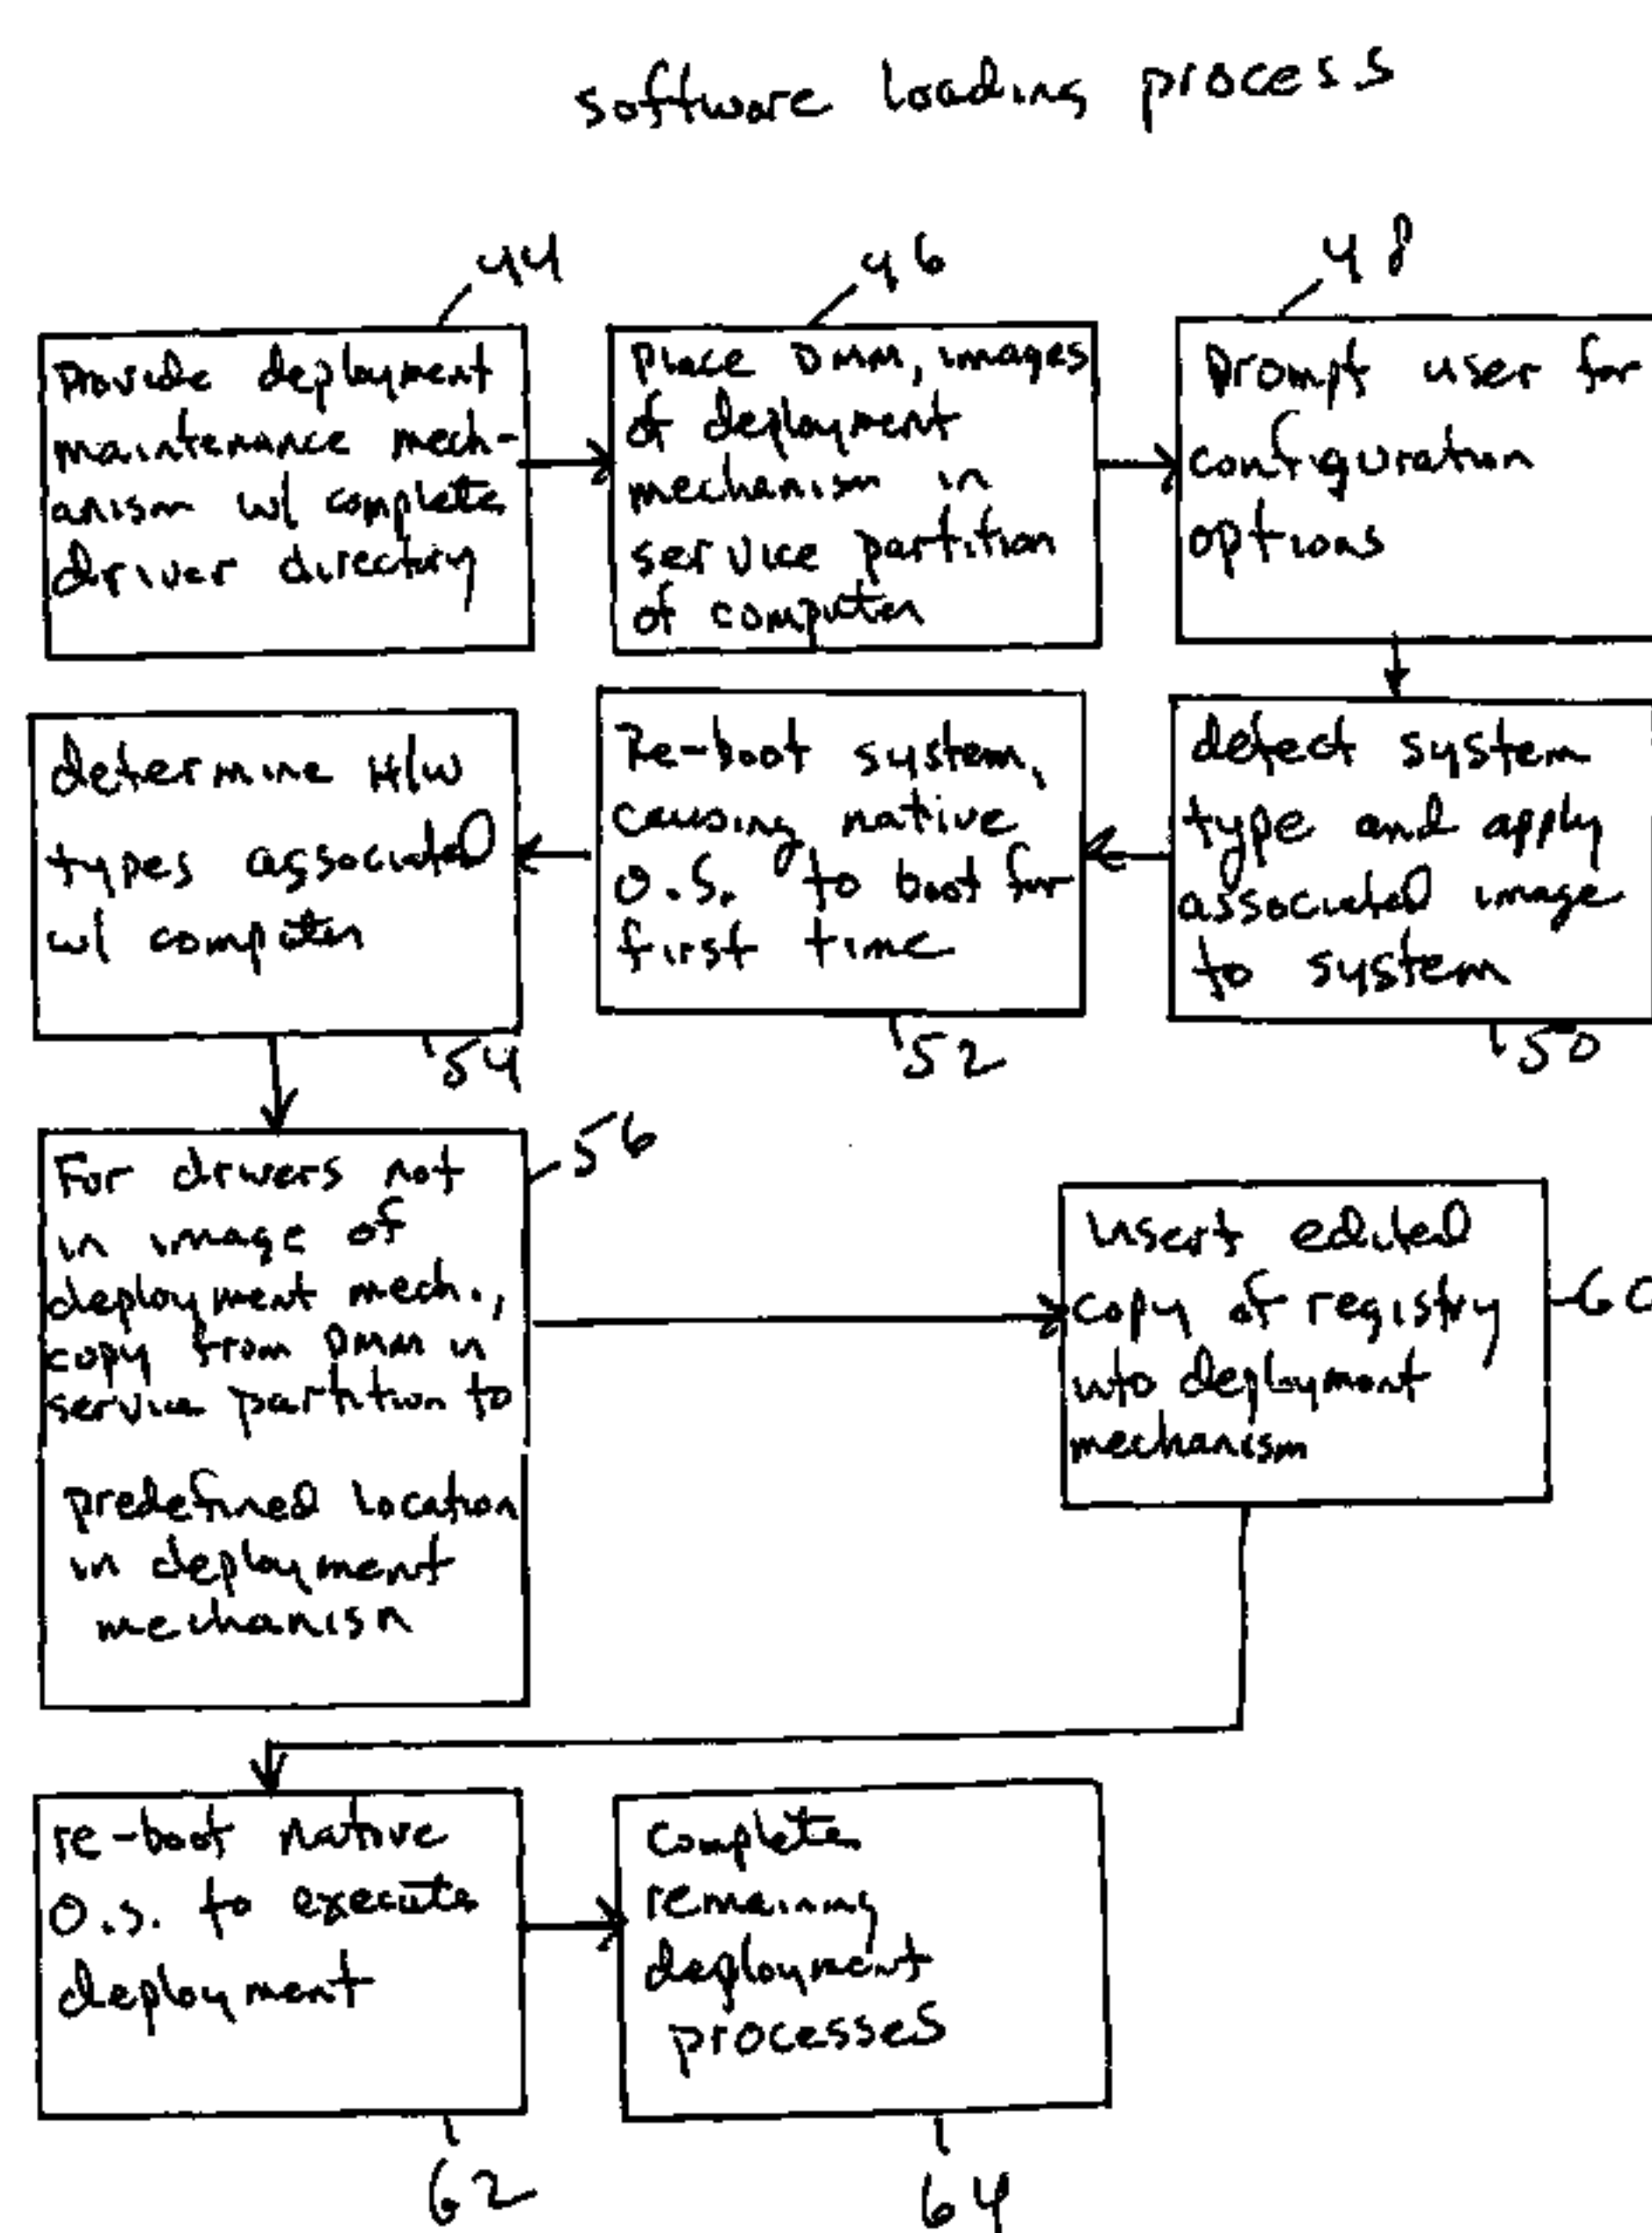 software loading process
44
provide deployment
maintenance mech-
anism w/ complete
driver directory
46
place DMM, images
of deployment
mechanism in
service partition
of computer
48
prompt user for
configuration
options
detect system
type and apply
associated image
to system
50
Re-boot system,
causing native
O.S. to boot for
first time
52
determine H/W
types associated
w/ computer
54
For drivers not
in image of
deployment mech.,
copy from DMM in
service partition to
predefined location
in deployment
mechanism
56
insert edited
copy of registry
into deployment
mechanism
60
re-boot native
O.S. to execute
deployment
62
complete
remaining
deployment
processes
64